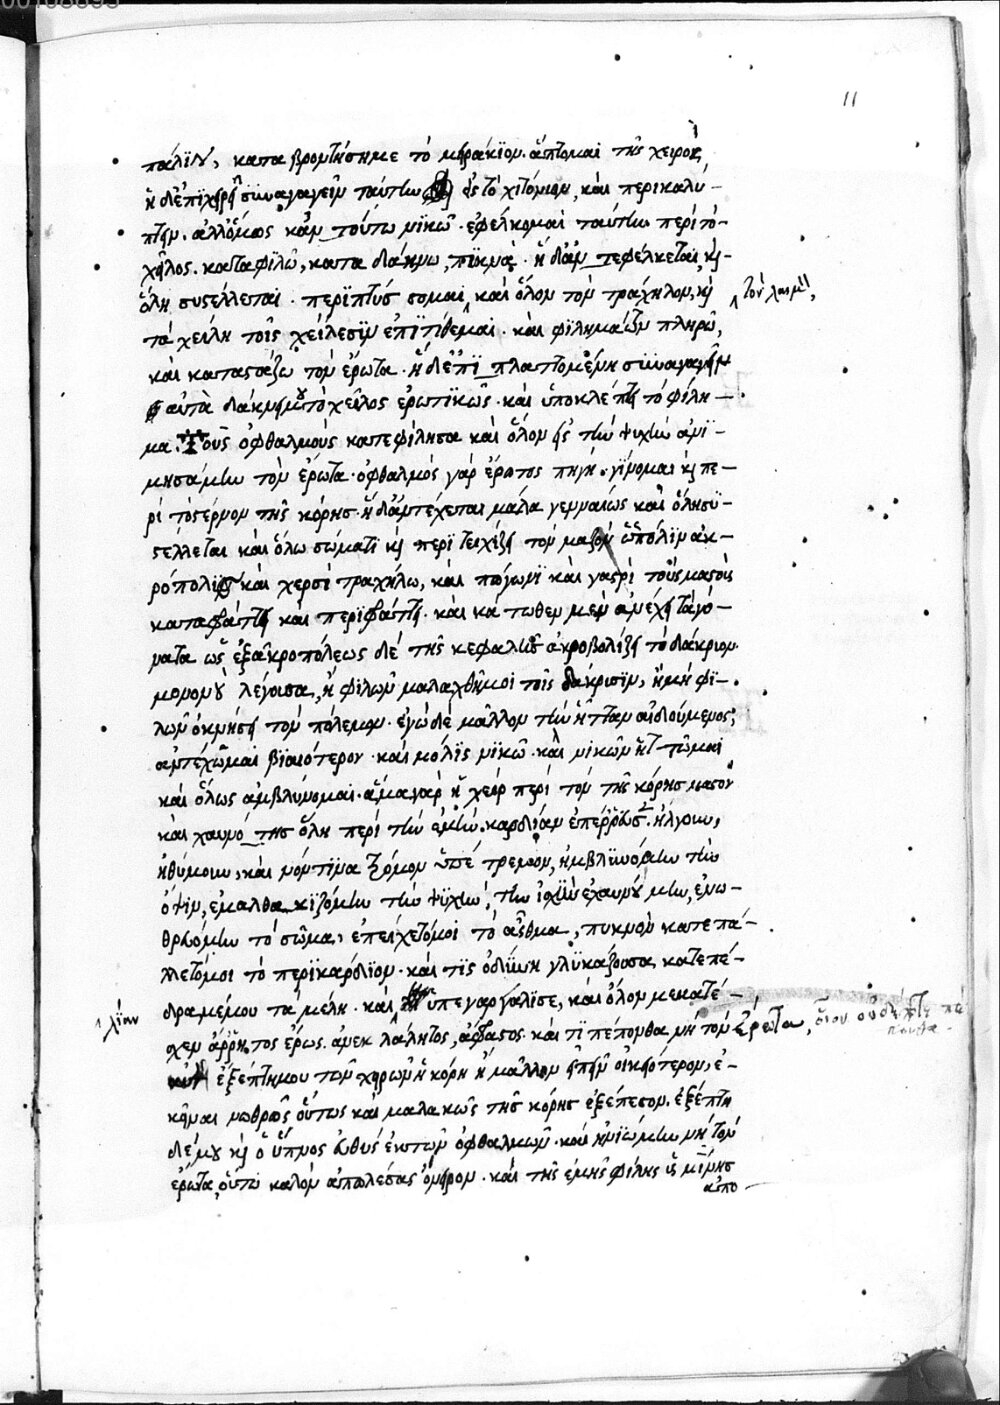 11
πάλιν, κατα βροντήσημε τὸ μειράκϊον. ἅπτομαι τῆς χειρός,
ἡ δ' ἐπιχειρεῖ συναγαγεῖν ταύτην εἰς τὸ χιτώνιον, καὶ περικαλύ-
πτειν. ἀλλ' ὅμως κἀν τούτω νϊκῶ. ἐφέλκομαι ταύτην περὶ τὸ
χεῖλος. καταφιλῶ, κατα δάκνω, πϊκνά. ἡ δ' ἀντεφέλκεται, κ
ὅλη συστέλλεται. περϊπτύσσομαι καὶ ὅλον τὸν τράχηλον, κ
τὸν λαιμὸν,
τὰ χείλη τοῖς χείλεσϊν ἐπιτίθεμαι. καὶ φϊλημάτων πληρῶ,
καὶ καταστάζω τὸν ἔρωτα. ἡ δ' ἐπϊπλαττομένη συναγαγεῖν
αὐτὰ δάκνει μου τὸ χεῖλος ἐρωτϊκῶς. καὶ ὑποκλέπτει τὸ φίλη-
μα. Τοὺς ὀφθαλμοὺς κατεφίλησα καὶ ὅλον εἰς τὴν ψυχὴν ἀνϊ-
μησάμην τὸν ἔρωτα. ὀφθαλμὸς γὰρ ἔρωτος πηγή. γίνομαι κ πε-
ρὶ τὸ στέρνον τῆς κόρης. ἡ δ' ἀντέχεται μάλα γενναίως καὶ ὅλη συ-
στέλλεται καὶ ὅλω σώματι κ περϊτειχίζει τὸν μαζὸν ὡς πόλϊν ἀκ-
ρόπολις καὶ χερσὶ τραχήλω, καὶ πώγωνϊ καὶ γαστρὶ τοὺς μαστοὺς
καταφράττει καὶ περϊφράττει. καὶ κάτωθεν μὲν ἀνέχει τὰ γό-
νατα ὡς ἐξ ἀκροπόλεως δὲ τῆς κεφαλῆς ἀκροβολίζει τὸ δάκρυον.
μονονοὺ λέγουσα, ἢ φιλῶν μαλαχθῆ μοι τοῖς δάκρυσϊν, ἢ μὴ φϊ-
λῶν ὀκνήσει τὸν πόλεμον. ἐγὼ δὲ μᾶλλον τὴν ἧτταν αἰδούμενος,
ἀντέχομαι βϊαιότερον. καὶ μόλϊς νϊκῶ. καὶ νικῶν ἡττῶμαι
καὶ ὅλως ἀμβλύνομαι. ἅμα γὰρ ἡ χεὶρ περὶ τὸν τῆς κόρης μαστὸν
καὶ χαυνότης ὅλη περὶ τὴν ἐμὴν καρδίαν ἐπέρρευσε. ἤλγουν,
ἠθύμουν, καὶ νόν τϊνα τρόμον ὑπέτρεμον, ἠμβλϊυνόμην τὴν
ὄψιν, ἐμαλθακϊζόμην τὴν ψυχὴν, τὴν ἰσχὺν ἐχαυνούμην, ἐνω-
θρευόμην τὸ σῶμα, ἐπείχετό μοι τὸ ἆσθμα, πυκνὸν κατεπά-
λλετό μοι τὸ περϊκάρδϊον. καί τϊς ὀδύνη γλϋκάζουσα κατεπέ-
λίαν
δραμέ μου τὰ μέλη. καὶ ὑπεγαργάλϊσε, καὶ ὅλον με κατέ-
σχεν ἄρρητος ἔρως. ἀνεκλάλητος, ἄφραστος. καὶ τϊ πέπονθα νὴ τὸν ἔρωτα, οἷον οὐδέποτε πέ
πονθα
ἐξέπτη μου τῶν χειρῶν ἡ κόρη ἢ μᾶλλον εἰπεῖν οἰκειότερον, ἐ-
κεῖναι νωθρῶς οὕτως καὶ μαλακῶς τῆς κόρης ἐξέπεσον. ἐξέπτη
δέ μου κ ὁ ὕπνος εὐθὺς ἐκ τῶν ὀφθαλμῶν. καὶ ἠνϊώμην νὴ τὸν
ἔρωτα, οὕτω καλὸν ἀπωλέσας ὄνειρον. καὶ τῆς ἐμῆς φίλης ὑσμίνης
ἀπο